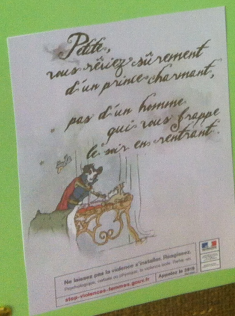 Petite,
vous rêviez sûrement
d'un prince charmant,
pas d'un homme
qui vous frappe
le soir en rentrant.
Ne laissez pas la violence s'installer. Réagissez.
stop-violences-femmes.gouv.fr
Appelez le 3919